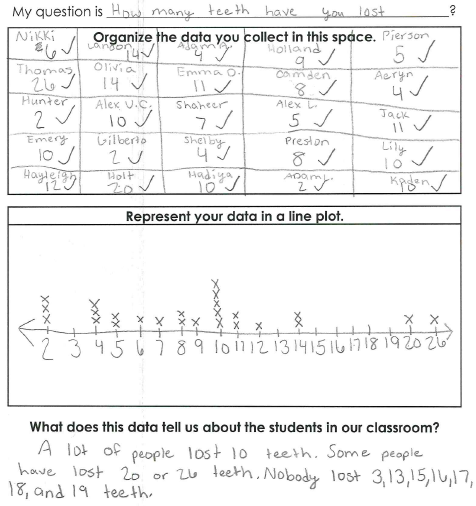 My question is How many teeth have you lost ?
Organize the data you collect in this space.
Nikki Landon Adam A. Holland Pierson
6 ✓ 14 ✓ 4 ✓ 9 ✓ 5 ✓
Thomas Olivia Emma O. Camden Aeryn
26 ✓ 14 ✓ 11 ✓ 8 ✓ 4 ✓
Hunter Alex V.C. Shaheer Alex L. Jack
2 ✓ 10 ✓ 7 ✓ 5 ✓ 11 ✓
Emery Gilberto Shelby Preston Lily
10 ✓ 2 ✓ 4 ✓ 8 ✓ 10 ✓
Hayleigh Holt Hadiya Adam L. Kaden
12 ✓ 20 ✓ 10 ✓ 2 ✓ 10 ✓
Represent your data in a line plot.
2 3 4 5 6 7 8 9 10 11 12 13 14 15 16 17 18 19 20 26
What does this data tell us about the students in our classroom?
A lot of people lost 10 teeth. Some people
have lost 20 or 26 teeth. Nobody lost 3,13,15,16,17,
18, and 19 teeth.